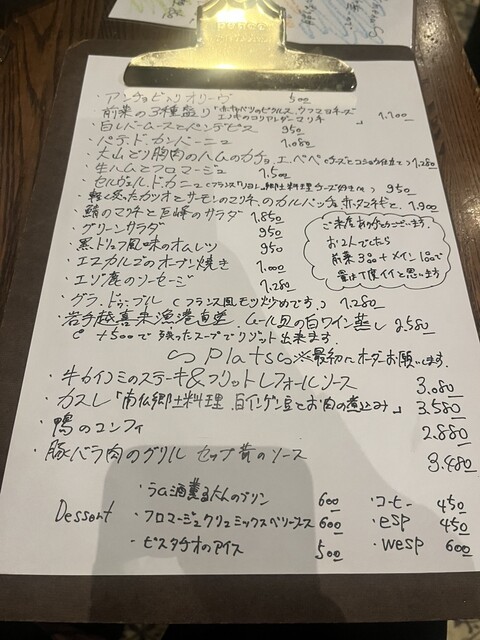 ・アンチョビ入りオリーヴ 500
前菜の3種盛り「赤キャベツのピクルス、ウフマヨネーズ エリンギのコリアンダーマリネ」 1,700
・白レバームースとパンデピス 950
・パテ.ド.カンパーニュ 1,080
・大山どり胸肉のハムのカチョ.エ.ペペ(チーズとコショウ仕立て) 1,280
・牛ハムとフロマージュ 1,500
・セルヴェル.ド.カニュ(フランス「リヨン」郷土料理チーズ 950
・軽く炙ったカツオとサーモンのマリネ、のカルパッチョ 赤.タマネギと、1,900
・鯖のマリネと巨峰のサラダ 1,850
・グリーンサラダ 950
・黒トリュフ風味のオムレツ 950
・エスカルゴのオーブン焼き 1,000
・エゾ鹿のソーセージ 1,280
ご来店ありがとうございます。
お2人でしたら
前菜3皿+メイン1皿で
量は丁度イイと思います
・グラ.ドゥ.ブル (フランス風モツ炒めです。) 1,280
・岩手越喜来漁港直送.ムール貝の白ワイン蒸し 2,580
+500で残ったスープでリゾット出来ます。
Plats ※最初にオーダーお願いします。
・牛カイノミのステーキ&フリットレフォールソース 3.080
・カスレ「南仏郷土料理.白インゲン豆とお肉の煮込み」 3,580
・鴨のコンフィ 2.880
・豚バラ肉のグリル セップ茸のソース 3.480
Dessert
・ラム酒薫る大人のプリン 600
・フロマージュクリュミックスベリーソース 600
・ピスタチオのアイス 500
・コーヒー 450
・esp 450
・wesp 600